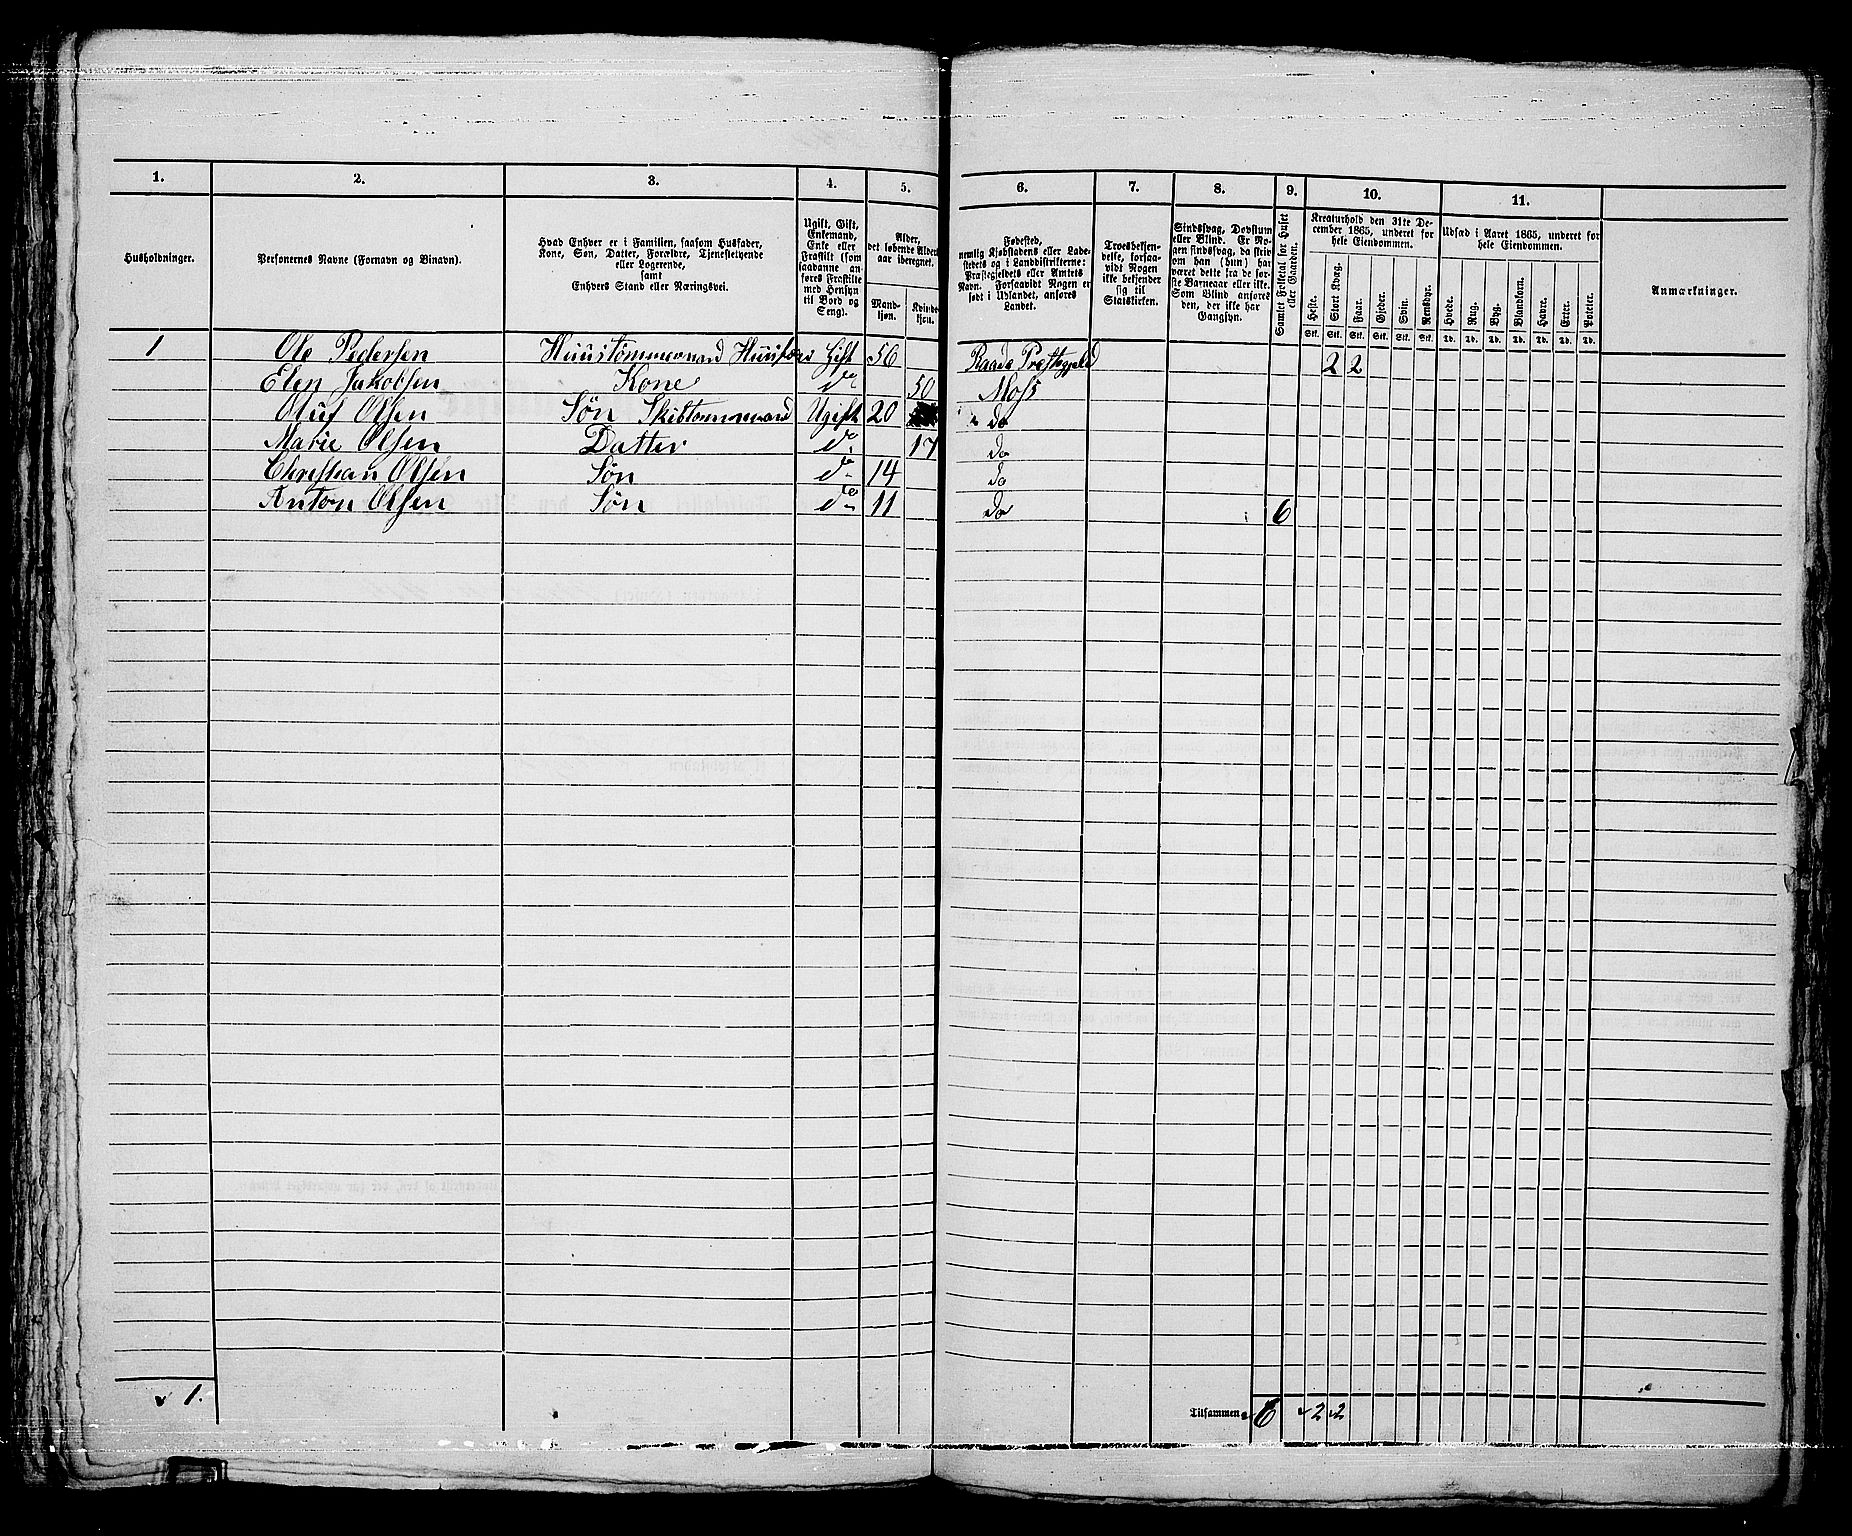 1. 2. 3. 4. 5. 6. 7. 8. 9. 10. 11.
Husholdninger.
Personernes Navne (Fornavn og Binavn).
Hvad Enhver er i Familien, saasom Husfader,
Kone, Søn, Datter, Forældre, Tjenestetyende
eller Logerende,
samt
Enhvers Stand eller Næringsvei.
Ugift, Gift,
Enkemand,
Enke eller
Fraskilt (som
saadanne an-
føres Fraskilte
med Hensyn
til Bord og
Seng).
Alder,
det løbende Alders-
aar iberegnet.
Mand-
kjøn.
Kvinde-
kjøn.
Fødested,
nemlig Kjøbstadens eller Lade-
stedets og i Landdistrikterne:
Præstegjeldets eller Amtets
Navn. Forsaavidt Nogen er
født i Udlandet, anføres
Landet.
Troesbekjen-
delse, forsaa-
vidt Nogen
ikke bekjender
sig til
Statskirken.
Sindssvag, Døvstum
eller Blind. Er No-
gen sindssvag, da skriv
om han (hun) har
været dette fra de før-
ste Barneaar eller ikke.
Som Blind anføres
den, der ikke har
Gangsyn.
Samlet Folketal for Huset
eller Gaarden.
Kreaturhold den 31te De-
cember 1865, underet for
hele Eiendommen.
Heste. Stort Kvæg. Faar. Gjeder. Svin. Rensdyr.
Stk. Stk. Stk. Stk. Stk. Stk.
Udsæd i Aaret 1865, underet for
hele Eiendommen.
Hvede. Rug. Byg. Blandkorn. Havre. Erter. Poteter.
Td. Td. Td. Td. Td. Td. Td.
Anmærkninger.
1 Ole Pedersen Huustømmermand Gift 56 Raade Præstegjeld 2 2
Elen Jakobsen Kone do 50 Moss
Oluf Olsen Søn Skibtømmermand Ugift 20 do
Marie Olsen Datter do 17 do
Christian Olsen Søn do 14 do
Anton Olsen Søn do 11 do 6
1. Tilsammen 6 2 2